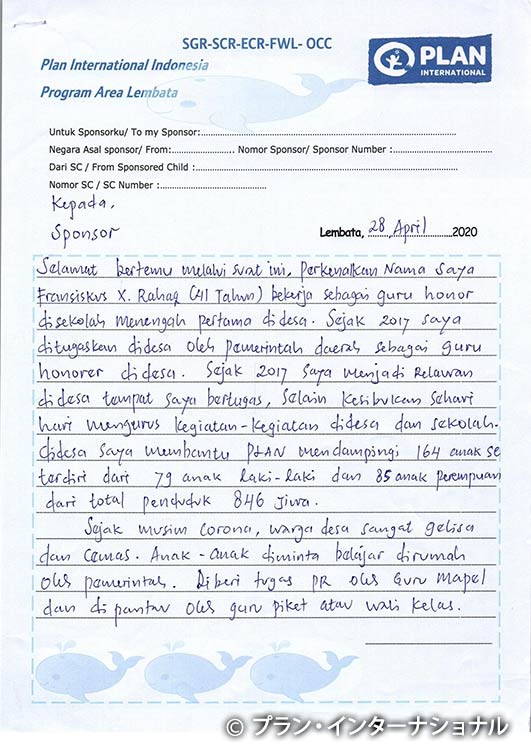 SGR-SCR-ECR-FWL- OCC
Plan International Indonesia
Program Area Lembata
PLAN
INTERNATIONAL
Untuk Sponsorku/ To my Sponsor:
Negara Asal sponsor/ From: Nomor Sponsor/ Sponsor Number :
Dari SC / From Sponsored Child :
Nomor SC / SC Number :
Kepada,
Sponsor
Lembata, 28 April 2020
Selamat bertemu melalui surat ini, Perkenalkan Nama saya
Fransiskus X. (41 Tahun) bekerja sebagai guru honor
disekolah menengah pertama didesa. Sejak 2017 saya
ditugaskan didesa oleh pemerintah daerah sebagai guru
honorer didesa. Sejak 2017 saya menjadi Relawan
didesa tempat saya bertugas, Selain Kesibukan sehari
hari mengurus kegiatan-kegiatan didesa dan sekolah.
didesa saya membantu PLAN mendampingi 164 anak se
terdiri dari 79 anak laki-laki dan 85 anak perempuan
dari total penduduk 846 Jiwa.
Sejak musim corona, warga desa sangat gelisa
dan cemas. Anak-anak diminta belajar dirumah
oleh pemerintah. Diberi tugas PR oleh Guru Mapel
dan dipantau oleh guru piket atau wali kelas.
© プラン・インターナショナル